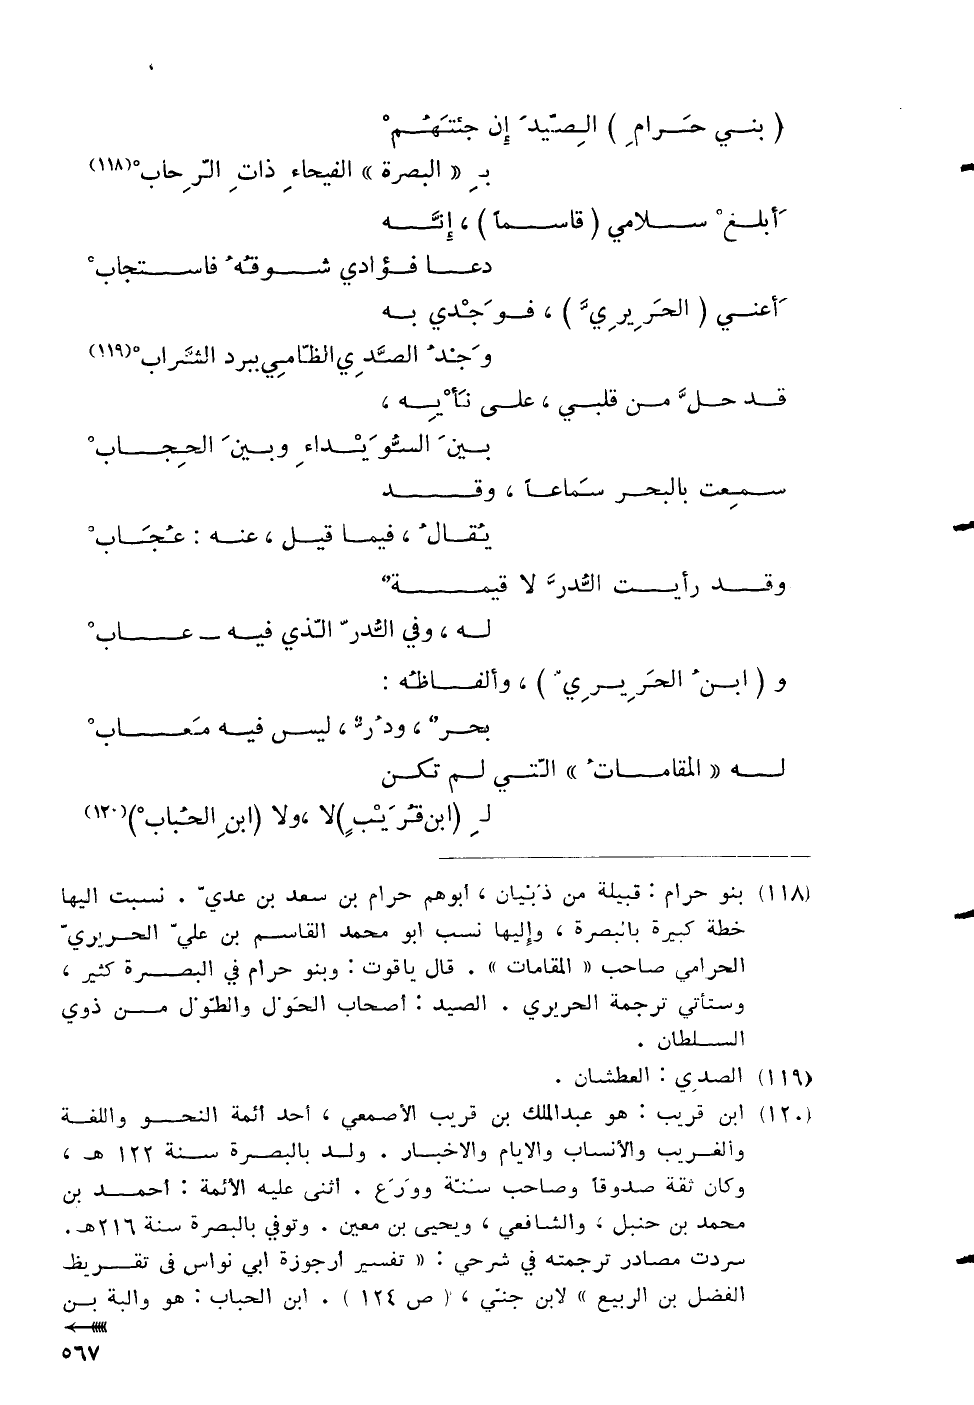 ( بنـي حَـرامِ ) الصِّيدَ إن جئتَهُـمْ
بـِ « البصرة » الفيحاءِ ذاتِ الرِّحابْ(١١٨)
أَبلـغْ سـلامي ( قاسـماً ) ، إنَّـه
دعـا فـؤادي شـوقُهُ فاسـتجابْ
أَعنـي ( الحَرِيرِيَّ ) ، فـوَجْدي بـه
وَجْدُ الصَّدِي الظّامِي ببرد الشَّرابْ(١١٩)
قـد حـلَّ مـن قلبـي ، علـى نَأْيِـه ،
بـينَ السُّوَيْـداءِ وبـينَ الحِجـابْ
سـمِعت بالبحـر سَماعـاً ، وقـد
يُقـالُ ، فيمـا قيـل ، عنـه : عُجَـابْ
وقـد رأيـت الدُّرَّ لا قيمـةٌ
لـه ، وفي الدُّرّ الّذي فيـه ـ عـابْ
و ( ابـنُ الحَرِيـرِيّ ) ، وألفـاظُه :
بحـرٌ ، ودُرٌّ ، ليـس فيـه مَعـابْ
لـه « المقامـاتُ » الّتـي لـم تكـن
لـِ (ابن قُرَيْبٍ) لا ، ولا (ابنِ الحُبابْ)(١٢٠)
(١١٨) بنو حرام : قبيلة من ذبيان ، أبوهم حرام بن سعد بن عديّ . نسبت اليها
خطة كبيرة بالبصرة ، وإليها نسب ابو محمد القاسم بن عليّ الحريريّ
الحرامي صاحب « المقامات » . قال ياقوت : وبنو حرام في البصرة كثير ،
وستأتي ترجمة الحريري . الصيد : أصحاب الحَوْل والطَّوْل مـن ذوي
السلطان .
(١١٩) الصدي : العطشان .
(١٢٠) ابن قريب : هو عبدالملك بن قريب الأصمعي ، أحد أئمة النحو واللغة
والغريب والأنساب والايام والاخبار . ولد بالبصرة سنة ١٢٢ هـ ،
وكان ثقة صدوقاً وصاحب سُنّة ووَرَع . أثنى عليه الأئمة : أحمد بن
محمد بن حنبل ، والشافعي ، ويحيى بن معين . وتوفي بالبصرة سنة ٢١٦هـ .
سردت مصادر ترجمته في شرحي : « تفسير أرجوزة ابي نواس في تقريظ
الفضل بن الربيع » لابن جنّي ، ( ص ١٢٤ ) . ابن الحباب : هو والبة بن
٥٦٧